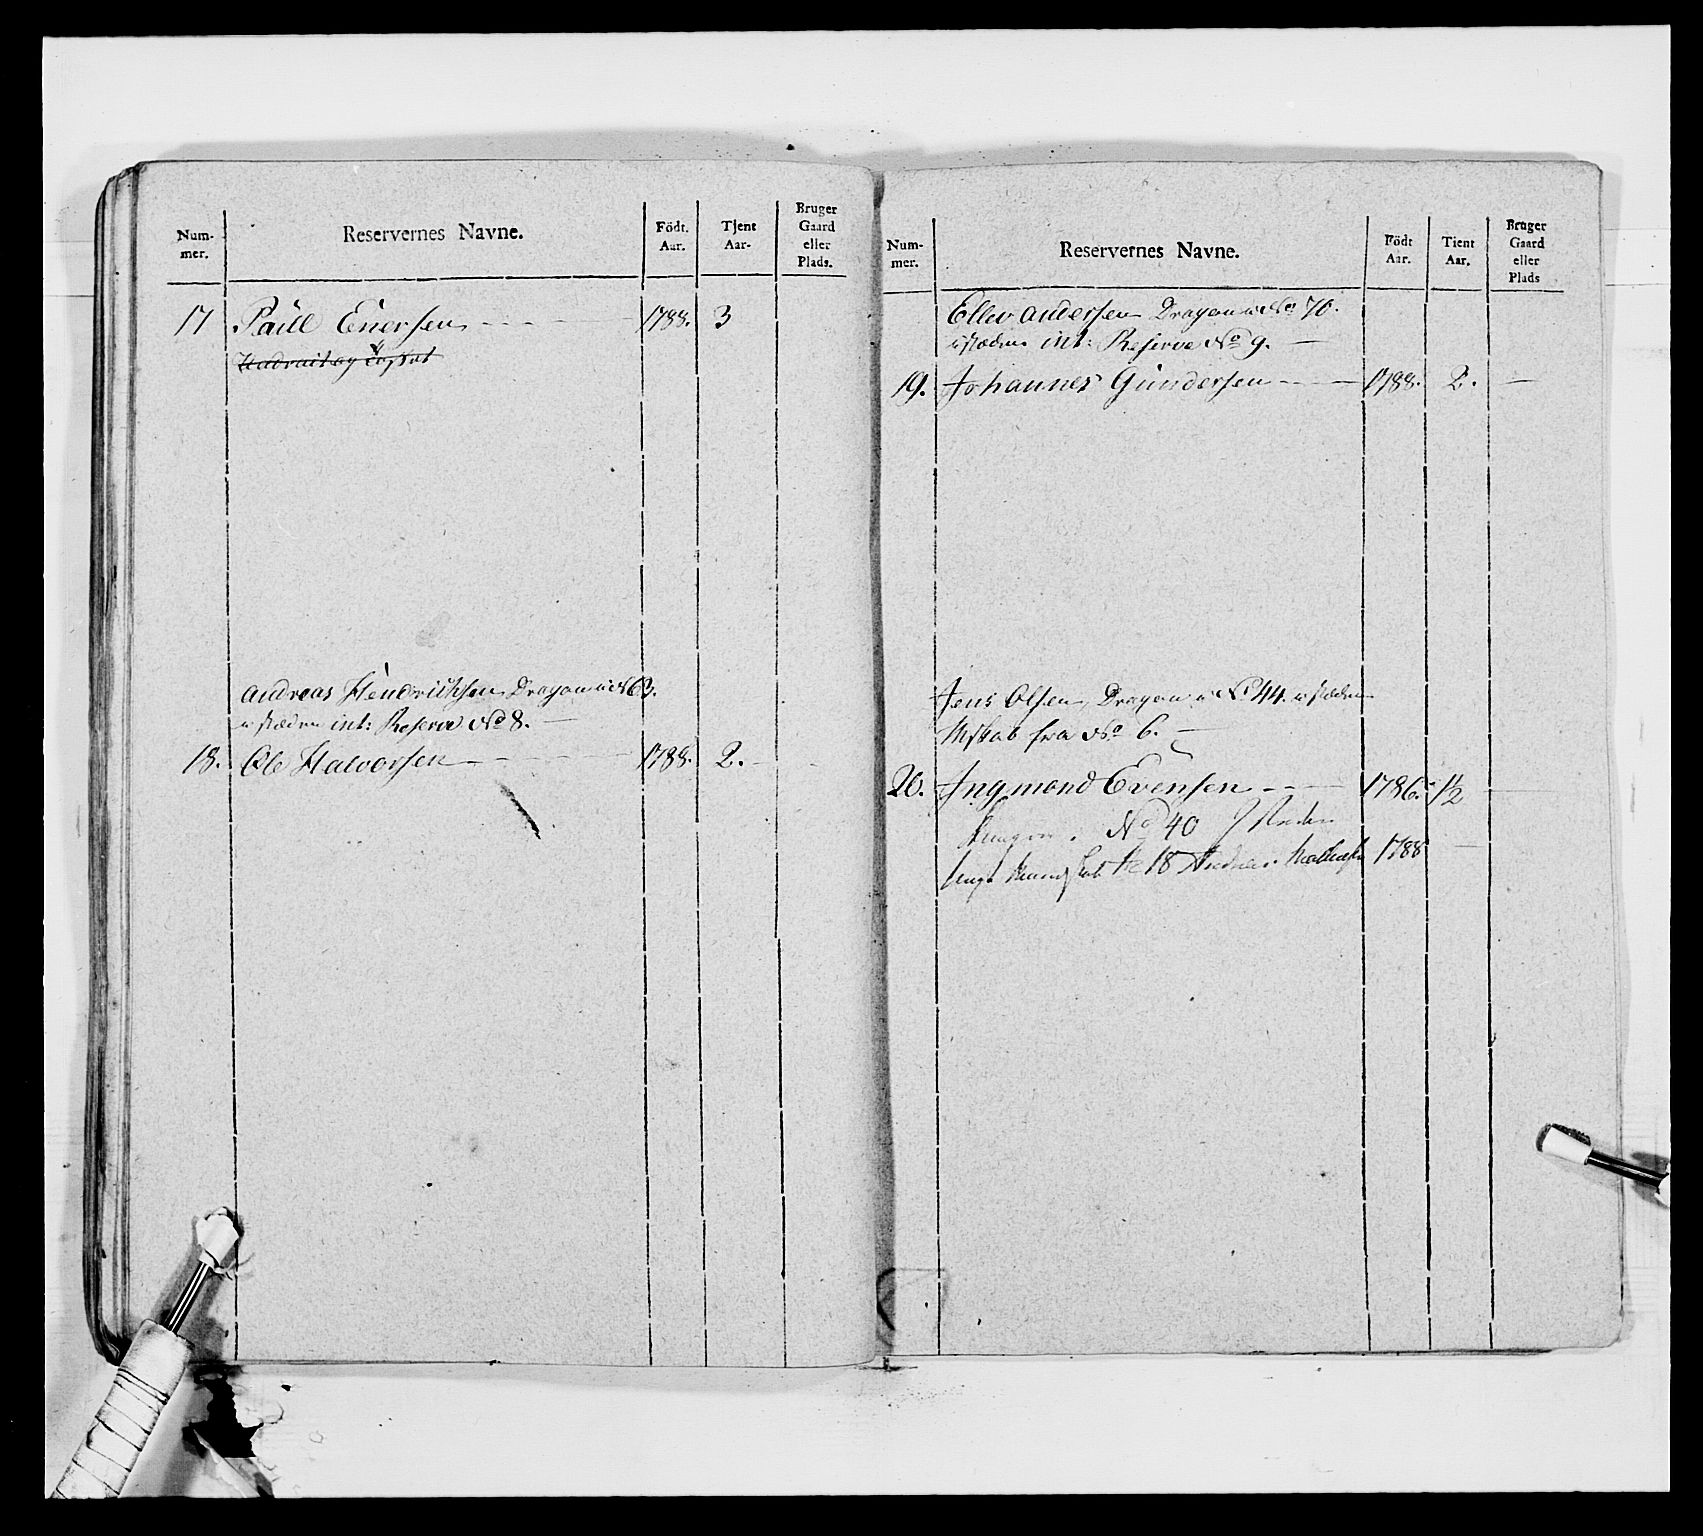 Num-
mer.
Reservernes Navne.
Födt.
Aar.
Tjent
Aar.
Bruger
Gaard
eller
Plads.
17 Paül Enersen 1788. 3
Andreas Hendrichsen Dragon No 63.
istæden int: Reserve No 8.
18. Ole Halvorsen 1788. 2.
Num-
mer.
Reservernes Navne.
Födt
Aar.
Tient
Aar.
Bruger
Gaard
eller
Plads
Ellev Andersen Dragon No 70.
istæden int: Reserve No 9.
19. Johannes Gündersen 1788. 2.
Jens Olsen, Dragon No 44. istæden
Mskab fra No 6.
20. Ingmond Evensen 1786. 1½
No 40 I steden
unge Mandskab No 18 Andreas 1788